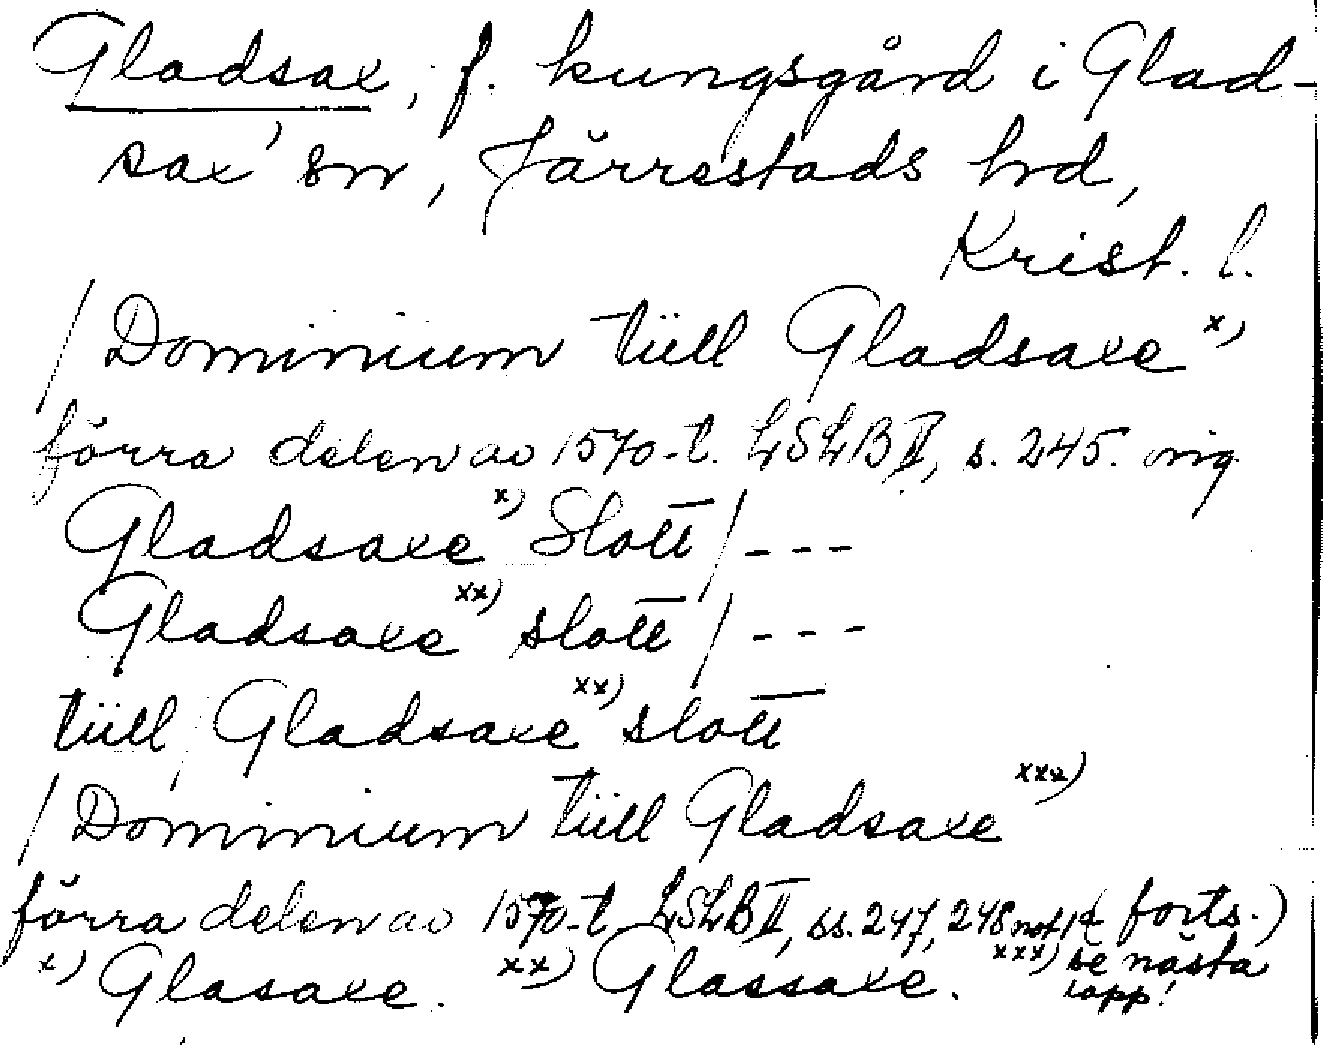 Gladsax, f. kungsgård i Glad-
sax' sn, Järrestads hrd,
Krist. l.
/ Dominium tüll Gladsaxe x)
förra delen av 1570-t. LSLB II, s. 245. orig.
Gladsaxe x) Slott / ---
Gladsaxe xx) slott / ---
tüll Gladsaxe xx) slott
/ Dominium tüll Gladsaxe xxx)
förra delen av 1570-t. LSLB II, ss. 247, 248 not 1 (forts.)
x) Glasaxe. xx) Glassaxe. xxx) se nästa
lapp!